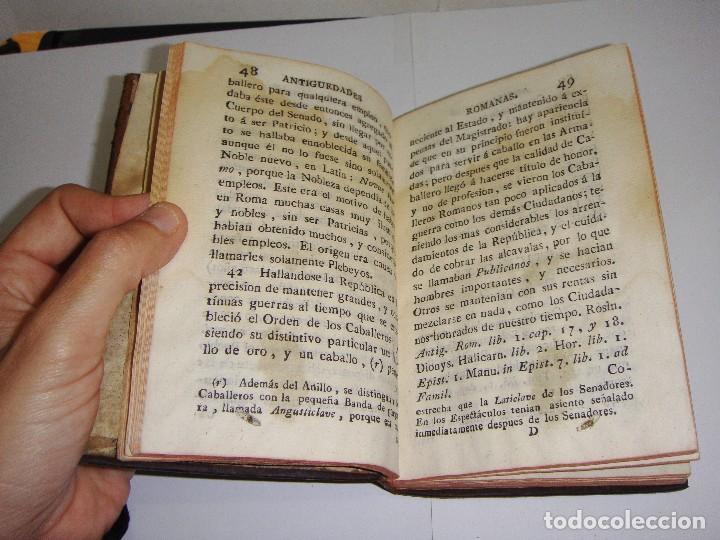 48 ANTIGUEDADES
ballero para qualquiera empleo,
daba éste desde entonces agregado
Cuerpo del Senado, sin llegar por
to á ser Patricio; y desde aquel
to se hallaba ennoblecida su
aunque él no lo fuese sino solo
Noble nuevo, en Latin: Novus
mo, porque la Nobleza dependia de
empleos. Este era el motivo de
en Roma muchas casas muy
y nobles, sin ser Patricias,
habian obtenido muchos, y
bles empleos. El origen era causa
llamarles solamente Plebeyos.
42 Hallandose la República en
precision de mantener grandes, y
tinuas guerras al tiempo que se
bleció el Orden de los Caballeros
siendo su distintivo particular un
llo de oro, y un caballo, (r)
(r) Además del Anillo, se
Caballeros con la pequeña Banda de
ra, llamada Angusticlave, porque
ROMANAS. 49
neciente al Estado, y mantenido á ex-
pensas del Magistrado: hay apariencia
de que en su principio fueron institui-
dos para servir á caballo en las Arma-
das; pero despues que la calidad de Ca-
ballero llegó á hacerse título de honor,
y no de profesion, se vieron los Caba-
lleros Romanos tan poco aplicados á la
guerra como los demás Ciudadanos; te-
niendo los mas considerables los arren-
damientos de la República, y el cuida-
do de cobrar las alcavalas, por lo que
se llamaban Publicanos, y se hacian
hombres importantes, y necesarios.
Otros se mantenian con sus rentas sin
mezclarse en nada, como los Ciudada-
nos honrados de nuestro tiempo. Rosin.
Antiq. Rom. lib. 1. cap. 17, y 18.
Dionys. Halicarn. lib. 2. Hor. lib. 1.
Epist. 1. Manu. in Epist. 7. lib. 1. ad
Famil. Co-
estrecha que la Laticlave de los Senadores.
En los Espectáculos tenian asiento señalado
inmediatamente despues de los Senadores.
D
todocoleccion
todocoleccion.net